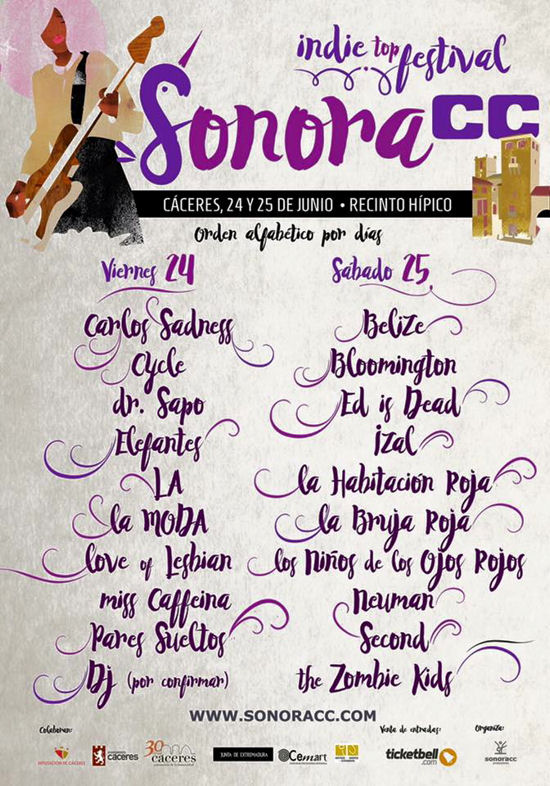 indie top festival
Sonora CC
CÁCERES, 24 Y 25 DE JUNIO • RECINTO HÍPICO
Orden alfabético por días
Viernes 24
Carlos Sadness
Cycle
dr. Sapo
Elefantes
LA
la MODA
love of Lesbian
miss Caffeina
Pares Sueltos
Dj (por confirmar)
Sábado 25
Belize
Bloomington
Ed is Dead
Izal
la Habitación Roja
la Bruja Roja
los Niños de los Ojos Rojos
Neuman
Second
the Zombie Kids
WWW.SONORACC.COM
Colaboran:
DIPUTACIÓN DE CÁCERES
cáceres
30 cáceres
JUNTA DE EXTREMADURA
Cemart
Venta de entradas:
ticketbell.com
Organiza:
sonoracc